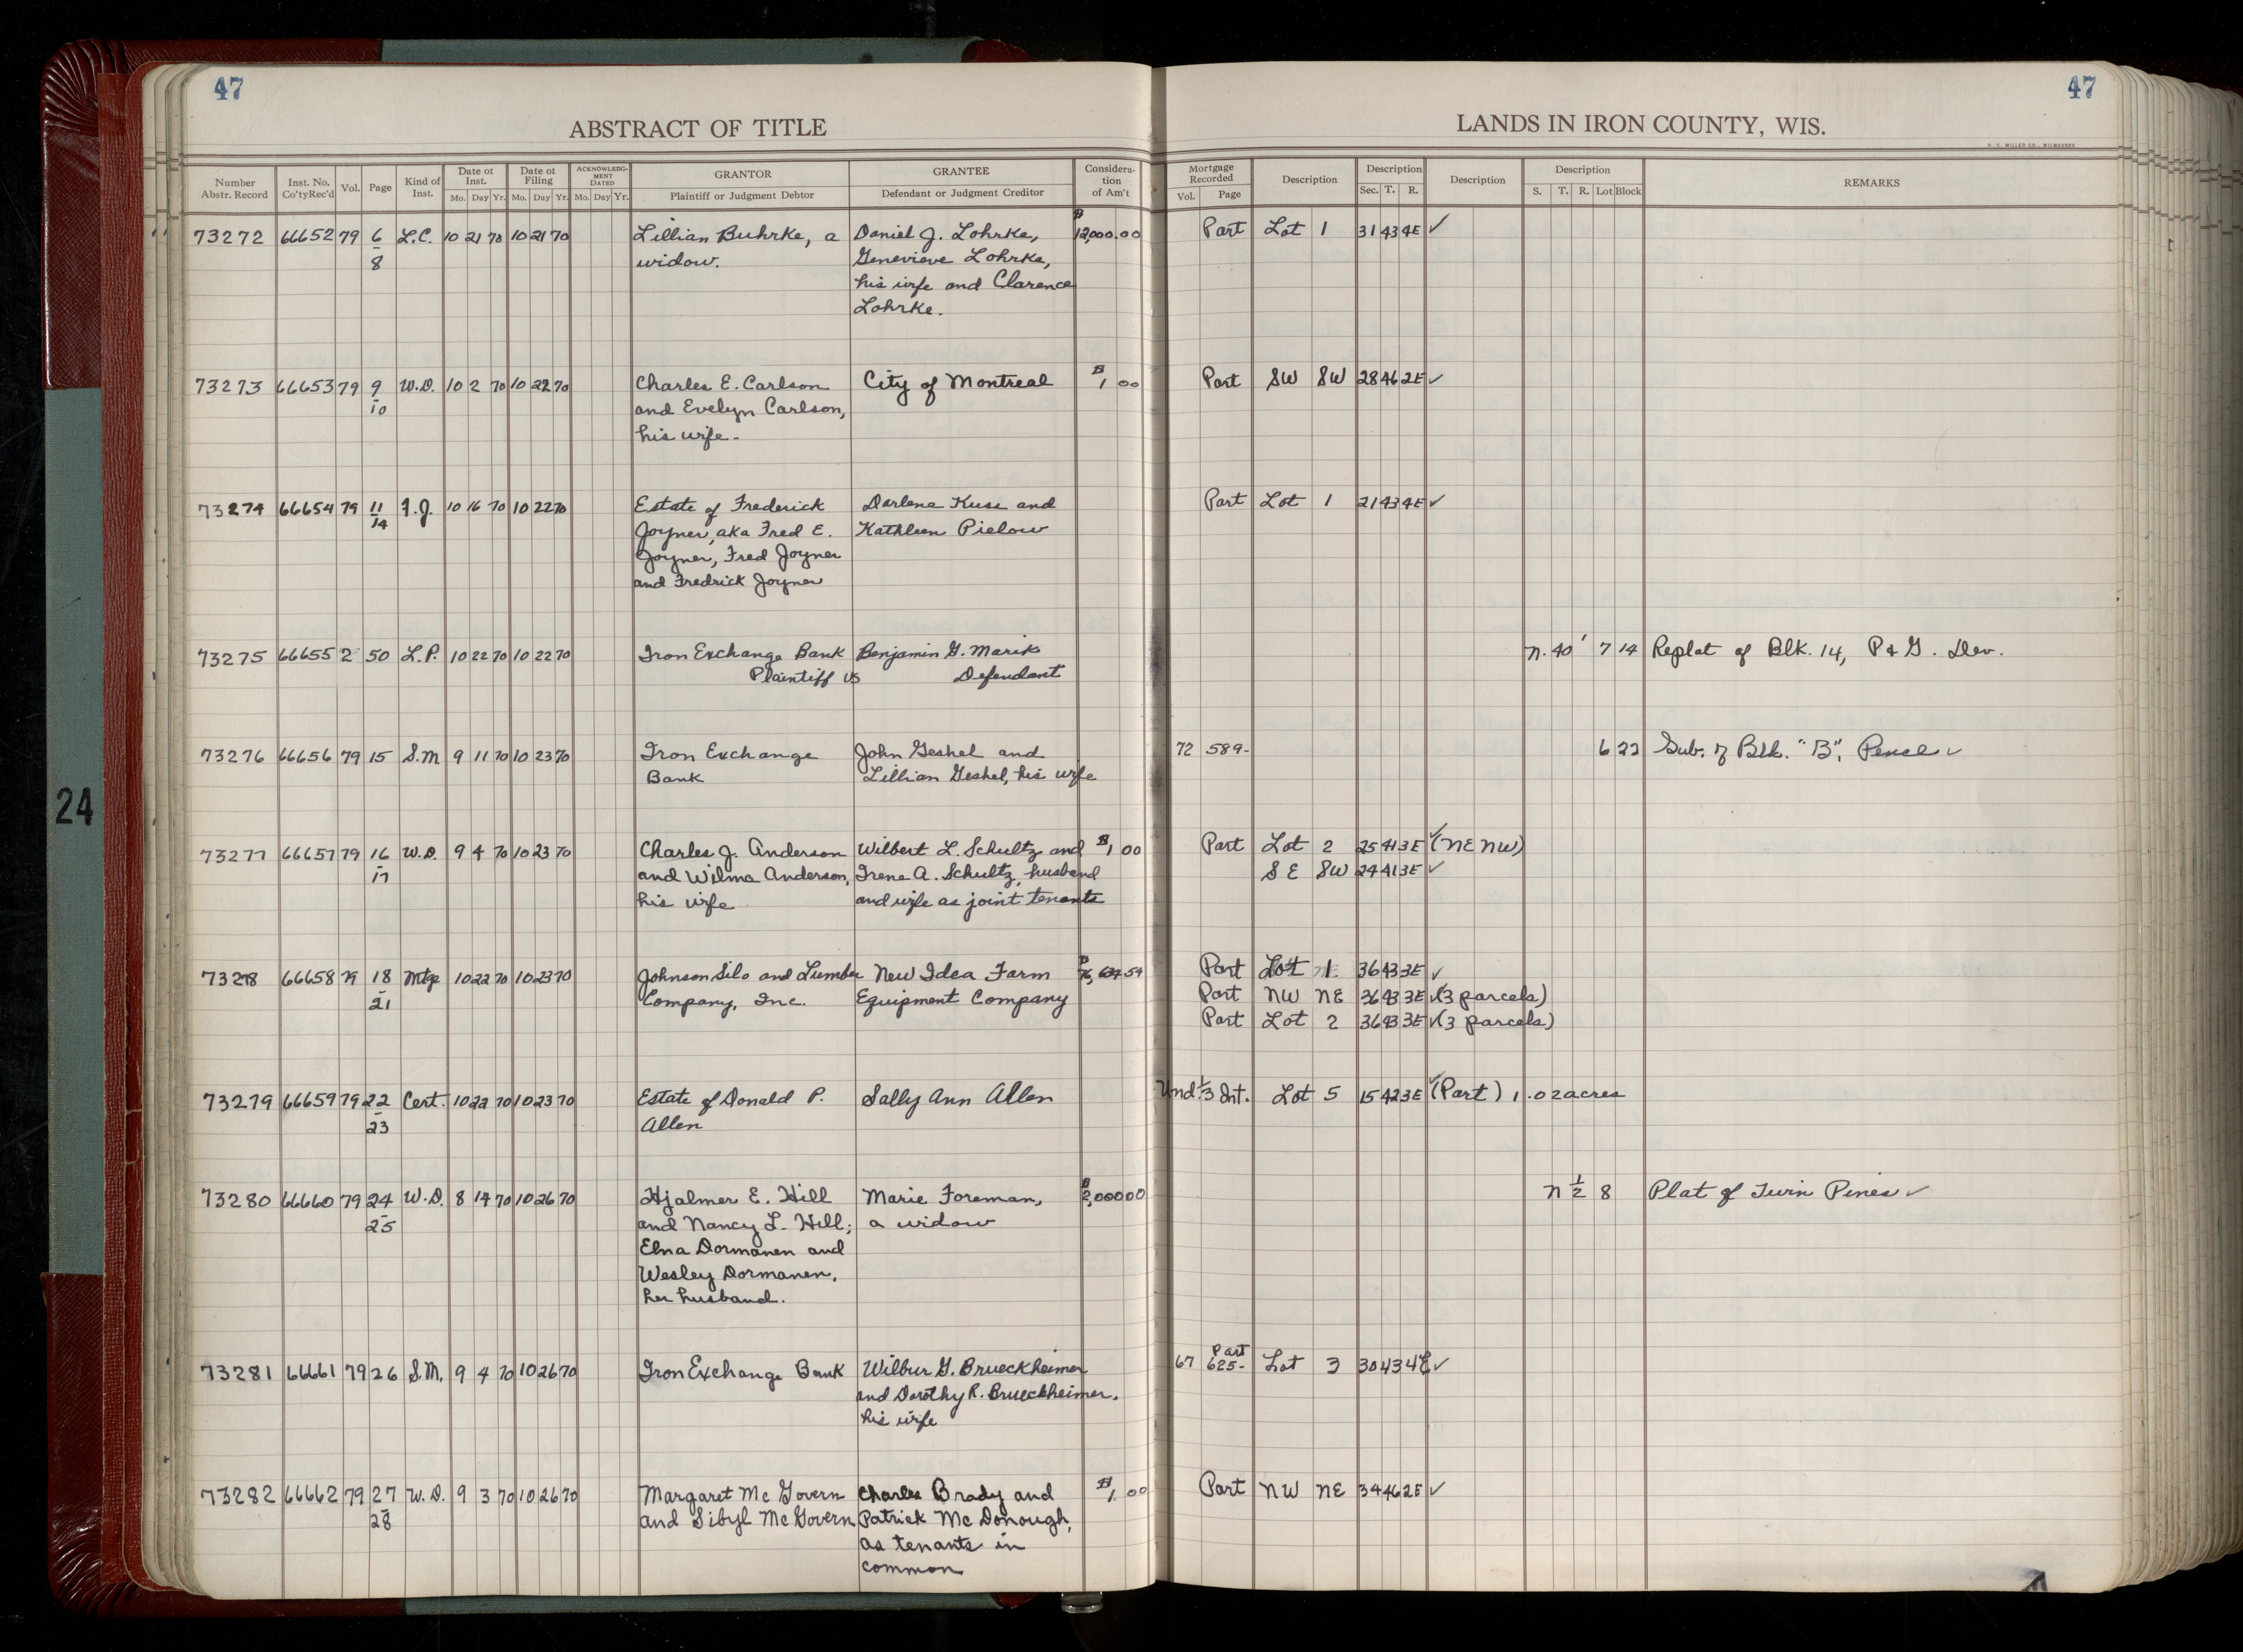 47
47
ABSTRACT OF TITLE
LANDS IN IRON COUNTY, WIS.
H. C. MILLER CO., MILWAUKEE
Number Abstr. Record | Inst. No. Co'ty Rec'd | Vol. | Page | Kind of Inst. | Date of Inst. Mo. Day Yr. | Date of Filing Mo. Day Yr. | ACKNOWLEDGMENT DATED Mo. Day Yr. | GRANTOR Plaintiff or Judgment Debtor | GRANTEE Defendant or Judgment Creditor | Consideration of Am't | Mortgage Recorded Vol. Page | Description | Description Sec. T. R. | Description | Description S. T. R. Lot Block | REMARKS
73272 66652 79 6 L.C. 10 21 70 10 21 70 Lillian Buhrke, a Daniel J. Lohrke, $12,000.00 Part Lot 1 31 43 4E ✓
8 widow. Genevieve Lohrke,
his wife and Clarence
Lohrke.
73273 66653 79 9 W.D. 10 2 70 10 22 70 Charles E. Carlson City of Montreal $1 00 Part SW SW 28 46 2E ✓
10 and Evelyn Carlson,
his wife.
73274 66654 79 11 F.J. 10 16 70 10 22 70 Estate of Frederick Darlene Kuss and Part Lot 1 21 43 4E ✓
14 Joyner, aka Fred E. Kathleen Pielow
Joyner, Fred Joyner
and Fredrick Joyner
73275 66655 2 50 L.P. 10 22 70 10 22 70 Iron Exchange Bank Benjamin G. Marik N. 40' 7 14 Replat of Blk. 14, P & G. Dev.
Plaintiff vs Defendant
73276 66656 79 15 S.M 9 11 70 10 23 70 Iron Exchange John Geshel and 72 589- 6 22 Sub. of Blk. "B", Pence ✓
Bank Lillian Geshel, his wife
73277 66657 79 16 W.D. 9 4 70 10 23 70 Charles J. Anderson Wilbert L. Schultz and $1 00 Part Lot 2 25 41 3E ✓ (NE NW)
17 and Wilma Anderson, Irene A. Schultz, husband SE SW 24 41 3E ✓
his wife and wife as joint tenants
73278 66658 79 18 Mtge 10 22 70 10 23 70 Johnson Silo and Lumber New Idea Farm Part Lot 1 36 43 3E ✓
21 Company, Inc. Equipment Company Part NW NE 36 43 3E ✓ (3 parcels)
Part Lot 2 36 43 3E ✓ (3 parcels)
73279 66659 79 22 Cert. 10 22 70 10 23 70 Estate of Donald P. Sally Ann Allen Und. 1/3 Int. Lot 5 15 42 3E ✓ (Part) 1.02 acres
23 Allen
73280 66660 79 24 W.D. 8 14 70 10 26 70 Hjalmer E. Hill Marie Foreman, $2,000 00 N 1/2 8 Plat of Twin Pines ✓
25 and Nancy L. Hill; a widow
Elna Dormanen and
Wesley Dormanen,
her husband.
73281 66661 79 26 S.M. 9 4 70 10 26 70 Iron Exchange Bank Wilbur G. Brueckheimer 67 625- Part Lot 3 30 43 4E ✓
and Dorothy R. Brueckheimer,
his wife
73282 66662 79 27 W.D. 9 3 70 10 26 70 Margaret McGovern Charles Brady and $1. 00 Part NW NE 34 46 2E ✓
28 and Sibyl McGovern Patrick McDonough,
as tenants in
common
24